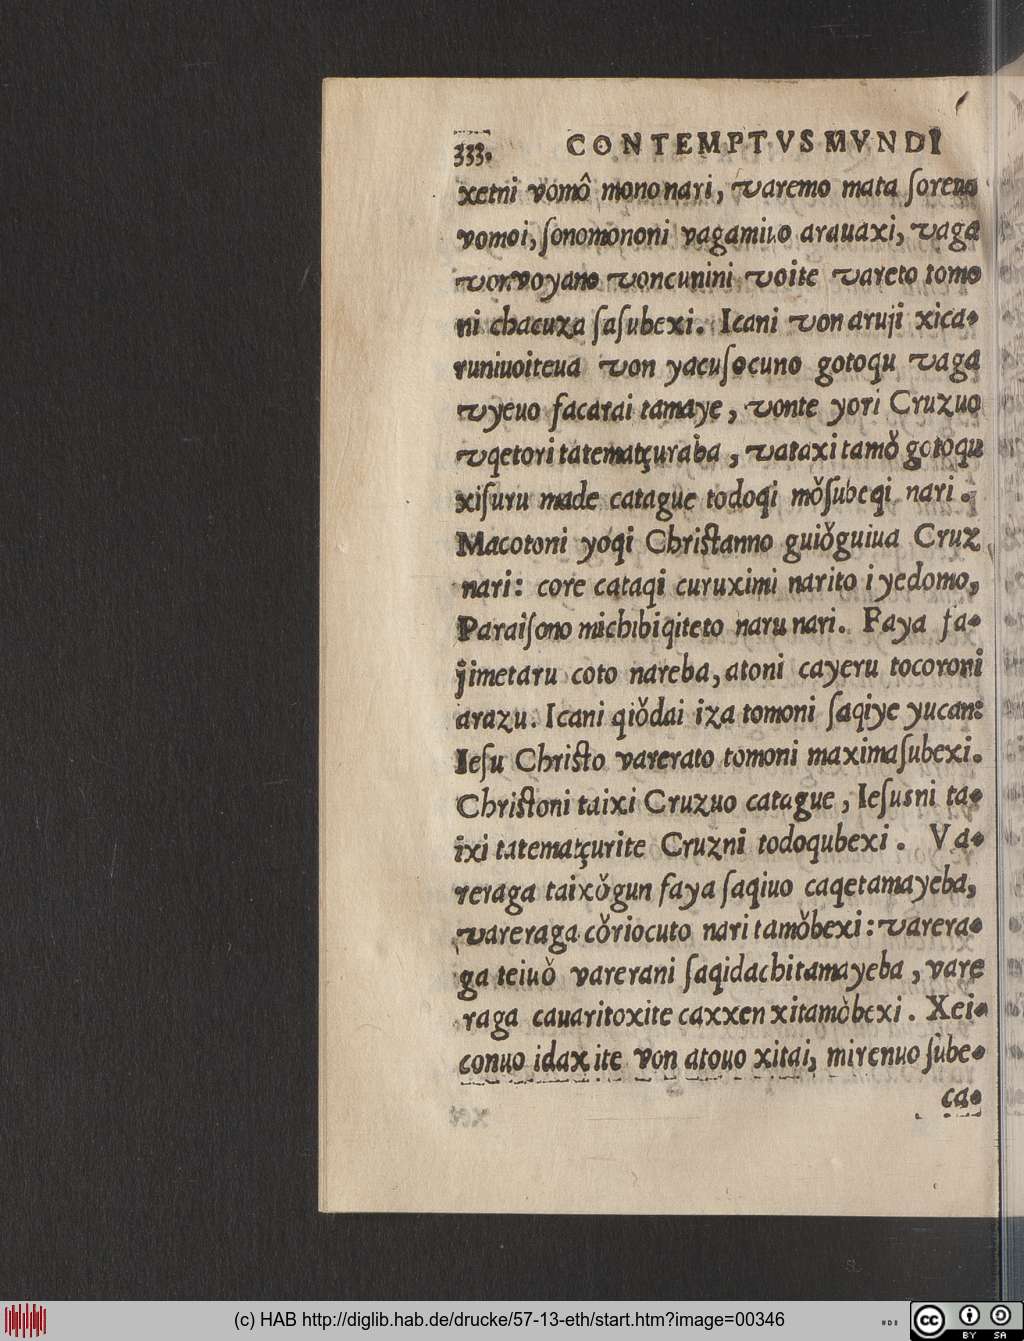 333. CONTEMPTVS MVNDI
xetni vomô mono nari, varemo mata ſoreno
vomoi, ſonomononi vagamiuo arauaxi, vaga
von voyano voncunini voite vareto tomo
ni chacuza ſaſubexi. Icani von aruji xica-
runiuoiteua von yacuſocuno gotoqu vaga
vyeuo facarai tamaye, vonte yori Cruzuo
vqetori tatematçuraba, vataxi tamǒ gotoqu
xiſuru made catague todoqi mǒſubeqi nari.
Macotoni yoqi Chriſtanno guiǒguiua Cruz
nari: core cataqi curuximi narito iyedomo,
Paraiſono michibiqiteto naru nari. Faya fa-
jimetaru coto nareba, atoni cayeru tocoroni
arazu. Icani qiǒdai iza tomoni ſaqiye yucan:
Ieſu Chriſto varerato tomoni maximaſubexi.
Chriſtoni taixi Cruzuo catague, Ieſusni ta-
ixi tatematçurite Cruzni todoqubexi. Va-
reraga taixǒgun faya ſaqiuo caqetamayeba,
vareraga cǒriocuto nari tamǒbexi: varera-
ga teiuǒ varerani ſaqidachitamayeba, vare
raga cauaritoxite caxxen xitamǒbexi. Xei-
conuo idaxite von atouo xitai, mirenuo ſube-
ca-
(c) HAB http://diglib.hab.de/drucke/57-13-eth/start.htm?image=00346
cc BY SA